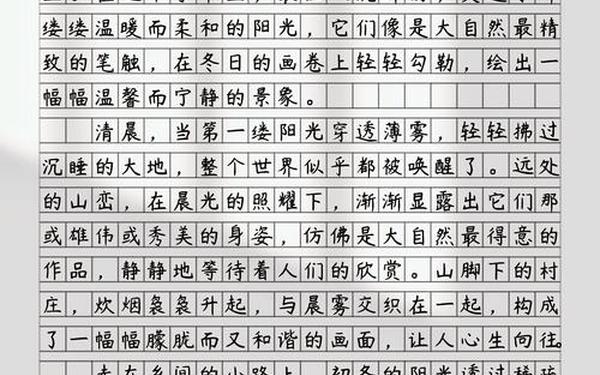 缕缕温暖而柔和的阳光，它们像是大自然最精
致的笔触，在冬日的画卷上轻轻勾勒，绘出一
幅幅温馨而宁静的景象。
清晨，当第一缕阳光穿透薄雾，轻轻拂过
沉睡的大地，整个世界似乎都被唤醒了。远处
的山峦，在晨光的照耀下，渐渐显露出它们那
或雄伟或秀美的身姿，仿佛是大自然最得意的
作品，静静地等待着人们的欣赏。山脚下的村
庄，炊烟袅袅升起，与晨雾交织在一起，构成
了一幅幅朦胧而又和谐的画面，让人心生向往。
走在乡间的小路上，初冬的阳光透过稀疏